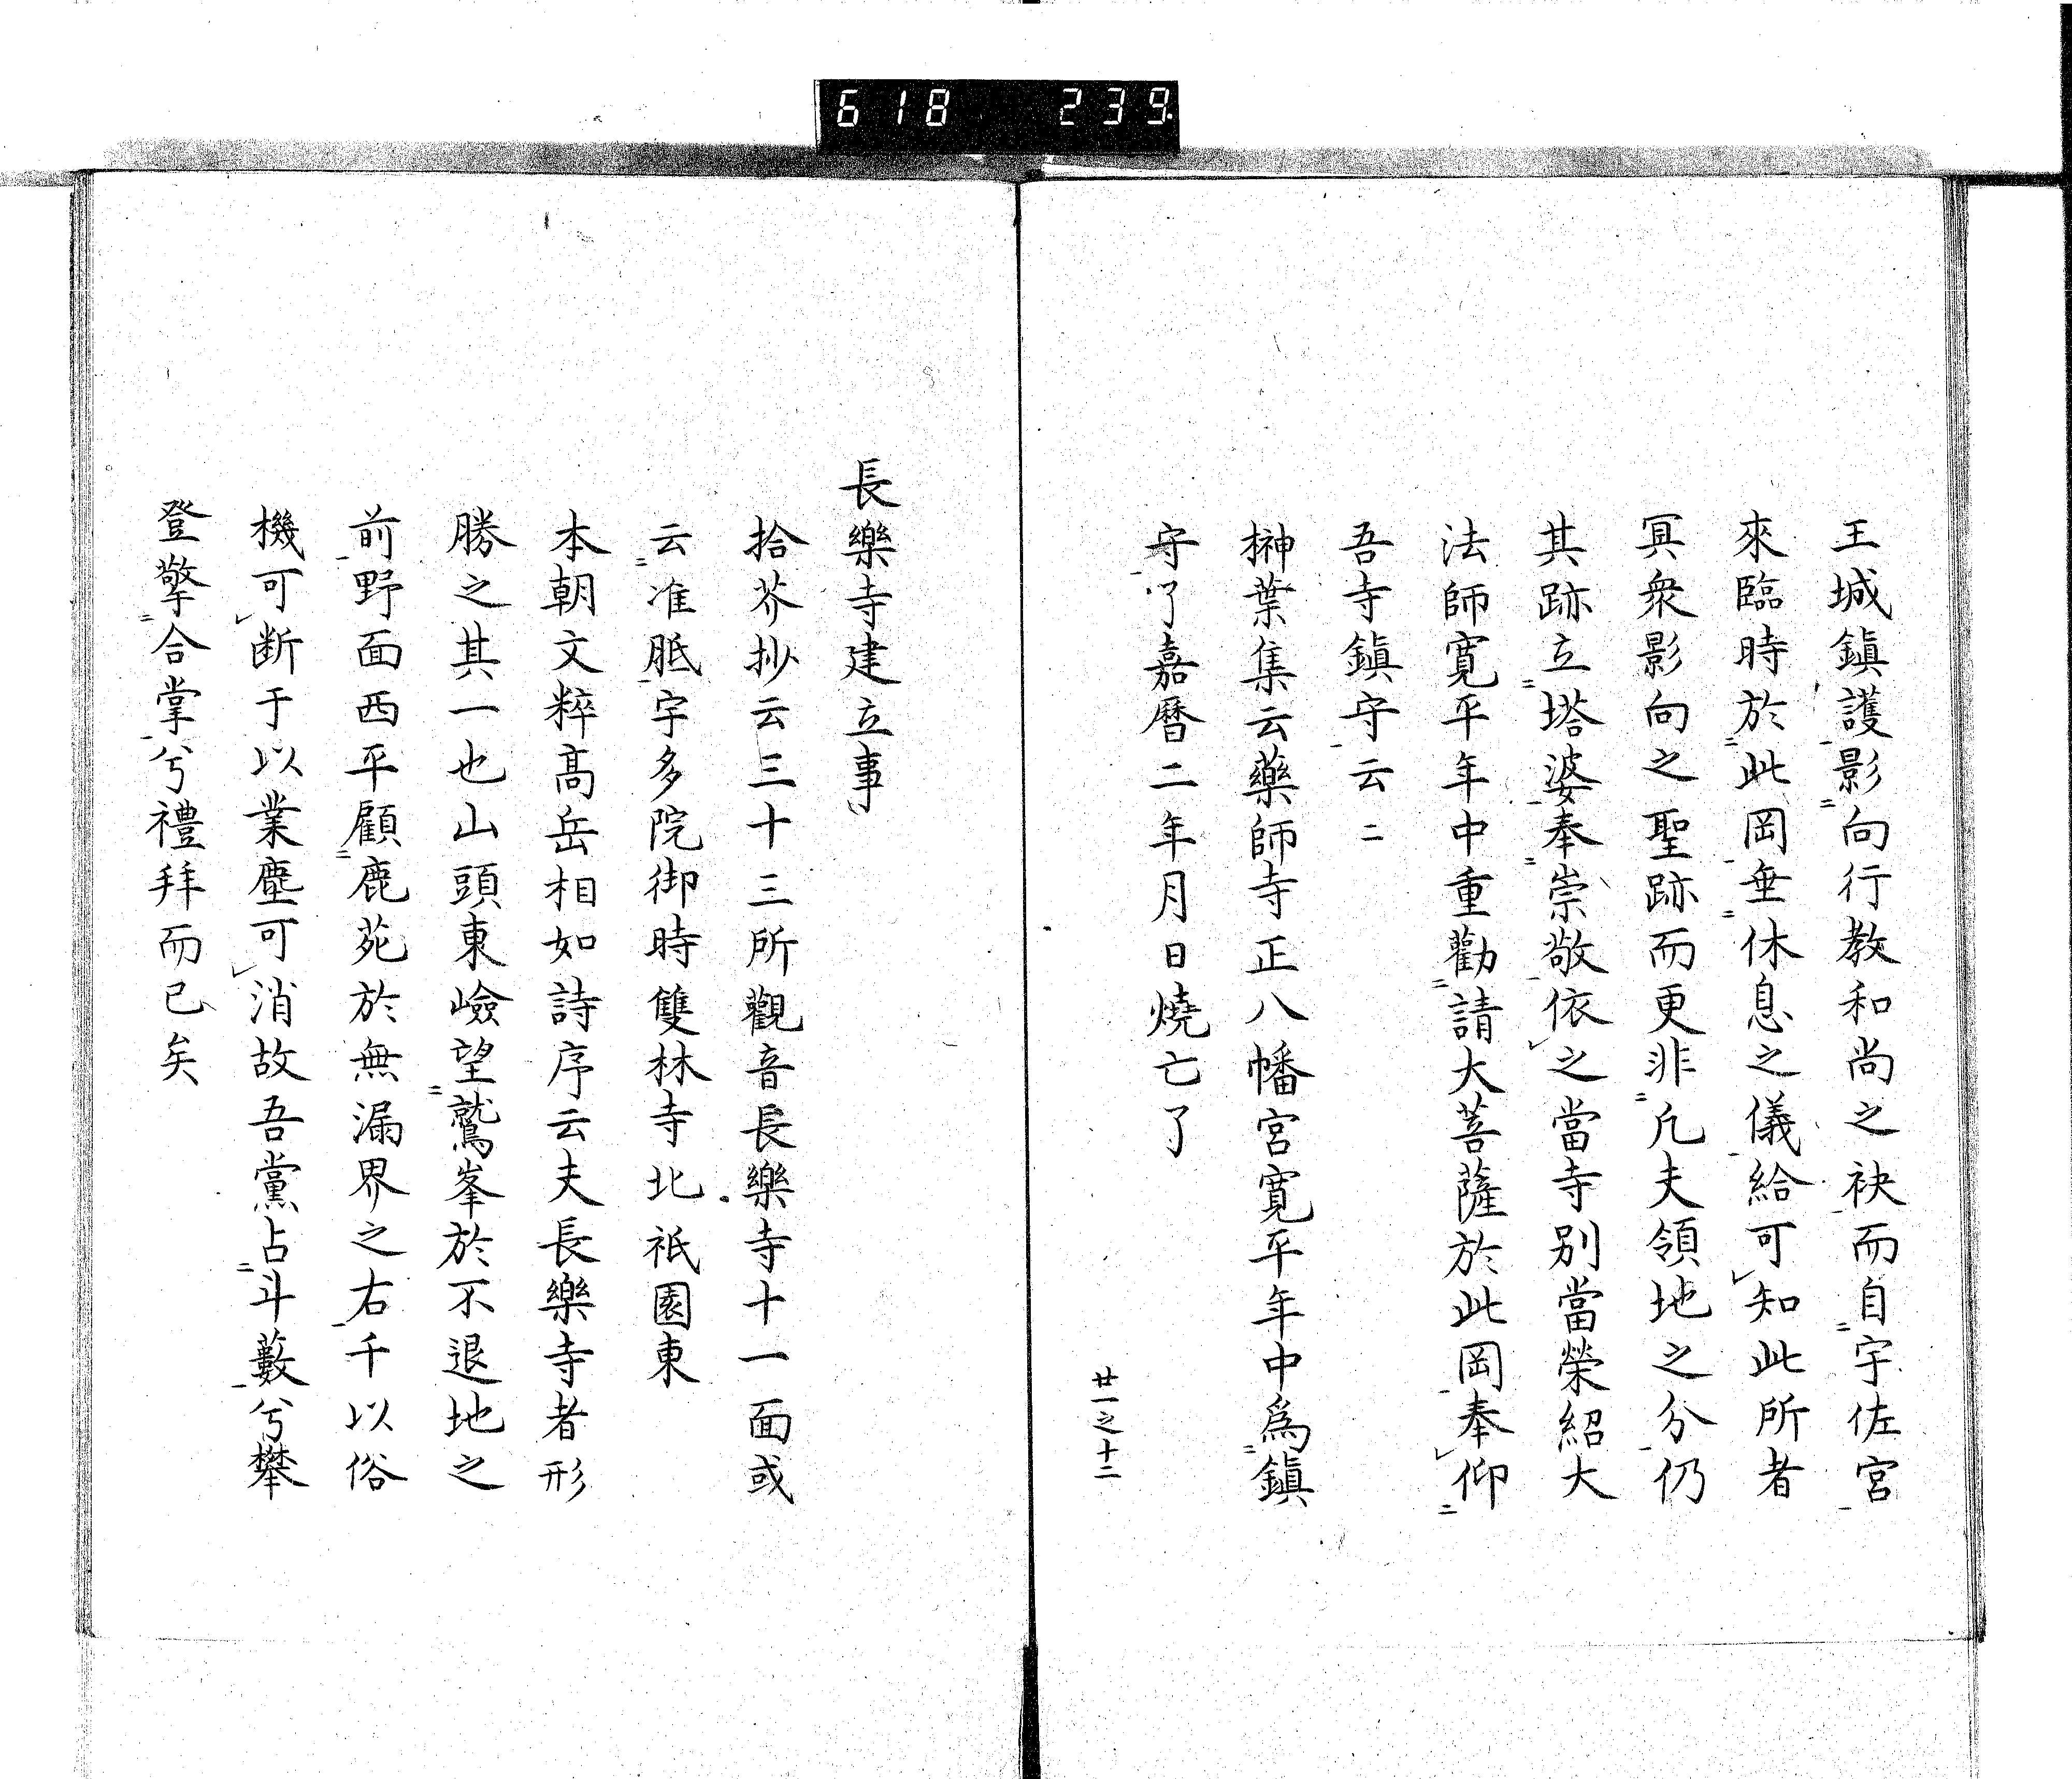 618 239
王城鎮護影向行教和尚之袂而自宇佐宮
來臨時於此岡垂休息之儀給可知此所者
冥衆影向之聖跡而更非凢夫領地之分仍
其跡立塔婆奉崇敬依之當寺別當榮紹大
法師寛平年中重勸請大菩薩於此岡奉仰
吾寺鎮守云二
榊葉集云藥師寺正八幡宮寛平年中爲鎮
守了嘉暦二年月日燒亡了
廿一之十二
長樂寺建立事
拾芥抄云三十三所觀音長樂寺十一面或
云准胝宇多院御時雙林寺北祇園東
本朝文粹髙岳相如詩序云夫長樂寺者形
勝之其一也山頭東嶮望鷲峯於不退地之
前野面西平顧鹿苑於無漏界之右千以俗
機可断于以業塵可消故吾黨占斗藪兮攀
登擎合掌兮禮拜而已矣